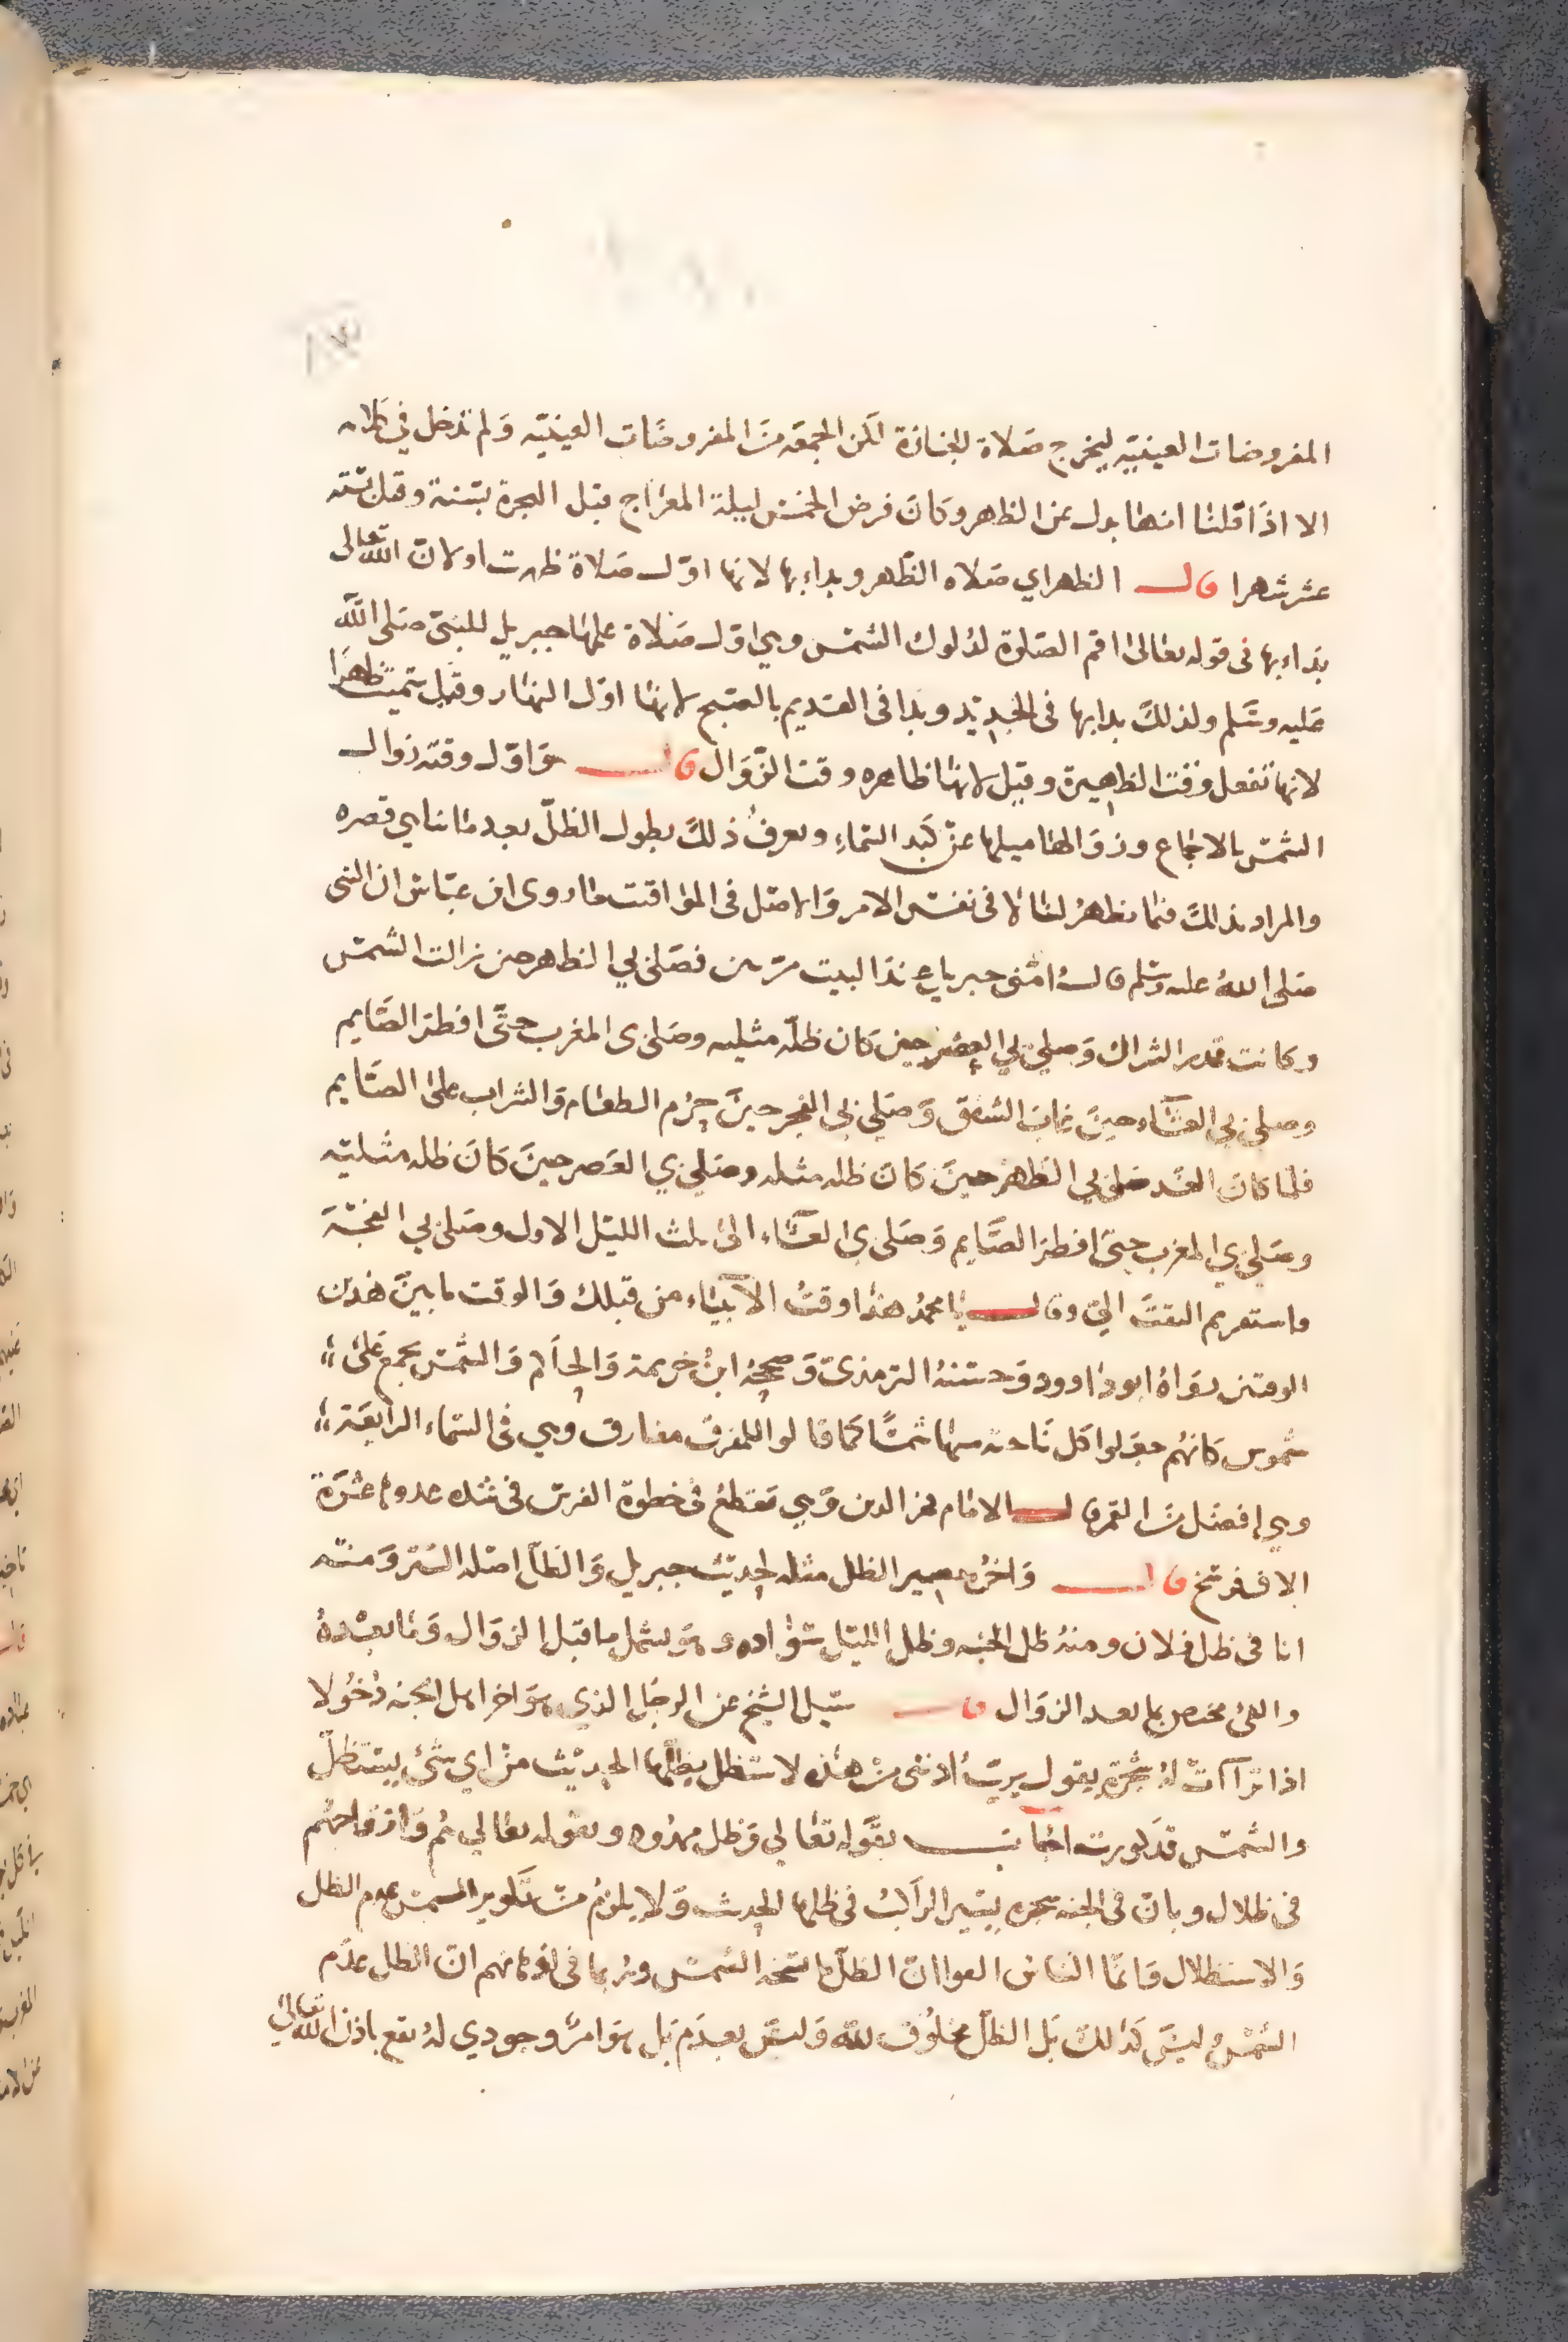 المفروضات العينيّه ليخرج صَلاة الجنازة لكن الجمعَه منَ المفروضَات العينيّه وَلم تدخل في كلامه
الا اذا قلنا انها بدل عن الظهر وكانَ فرض الخمس ليلة المعراج قبل الهجرة بسنة وقيل بستة
عشر شهرا قال الظهر اي صَلاه الظّهر وبداء بها لانها اوّل صَلاة ظهرت اولان الله تعالى
بداء بها فى قوله تعالى اقم الصّلوة لدلوك الشمس وهي اوّل صَلاة علمها جبريل للنبيّ صَلى الله
عَليه وسَلم ولذلكَ بدا بها فى الجديد وبدا فى القديم بالصبح لانها اوّل النهار وقيل سميت ظهرا
لانها تفعل وقت الظهيرة وقيل لانها ظاهره وقت الزّوَال قال وَاوّل وقته زوال
الشمس بالاجماع وزوَالها ميلها عن كبد السّماءِ ويعرفُ ذلكَ بطول الظلّ بعد تناهي قصره
والمراد بذلكَ فيما يظهرُ لنا لا فى نفس الامر وَالاصل فى المواقيت ما روى ابن عبّاس ان النبى
صَلى اللهُ عليه وسَلم قال امّنى جبريل عند البيت مرّتين فصَلى بي الظهر حين زالت الشمس
وكانت قدر الشراك وَصلى بي العصر حين كان ظلّه مثليه وصَلى بى المغرب حتّى افطر الصّايم
وصلى بي العشاء حينَ غابَ الشفق وَصَلى بي الفجر حينَ حرُم الطعام وَالشراب على الصّايم
فلما كانَ الغَد صَلى بي الظهر حينَ كانَ ظله مثله وصَلى بي العَصر حينَ كانَ ظله مثليه
وصَلى بي المغرب حتى افطر الصَّايم وَصَلى بي العشاء الى ثلث الليل الاول وصَلى بي الفجر
فاسفر ثم التفتَ اليّ وقال يا محمدُ هذا وقتُ الانبياء من قبلك وَالوقت ما بينَ هذين
الوقتين رَوَاهُ ابو داوود وَحسّنهُ الترمذيّ وَصححهُ ابنُ خزيمة وَالحاكم وَالشمس تجمع عَلى
شموس كانهُم جعَلوا كل ناحية منها شمسًا كما قالوا للمفرق مفارق وهي فى السّماء الرابعَة
وهي افضل منَ القمر قال الامام فخر الدين وَهي تقطع فى خطوة الفرس فى شده عدوه عشرَة
الاف فرسخ قال وَاخرُه مصير الظل مثله لحديث جبريل وَالظل اصله السّتر وَمنه
انا فى ظل فلان ومنهُ ظل الجنه وظل الليل سَوَاده وهوَ يشمل ما قبل الزوَال وَما بعدهُ
والفئ مختص بما بعد الزوَال سُيل الشيخ عن الرجل الذي هوَ اخر اهل الجنه دُخُولا
اذا تراآت لهُ شجرَة يقول يربّ ادننى من هذه لاستظل بظلّها الحديث من اي شئ يستظلّ
والشمس قد كورت اجاب بقوله تعَالي وَظل ممدود وبقوله تعَالي هُم وَازواجهُم
فى ظلال وبان فى الجنه شجره يسير الراكبُ فى ظلها الحديث وَلا يلزمُ من تكوير الشمس عدم الظل
وَالاستظلال وَانما الناس الفوا ان الظلّ ما تنسخه الشمس وربما فى اوهامهم ان الظل عدَم
الشمس وليسَ كذلك بَل الظلّ مخلُوق لله وَليسَ بعدَم بَل هوَ امرٌ وجودي لهُ نفع باذن الله تعالى